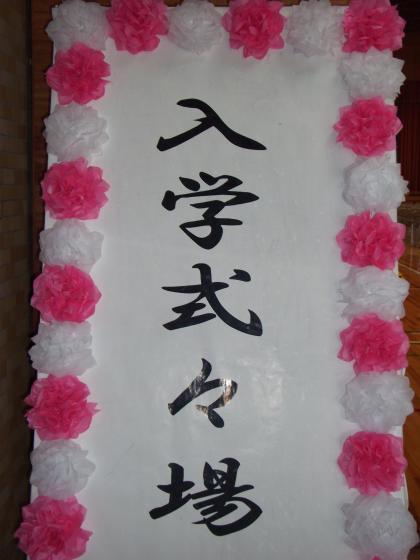 入学式々場